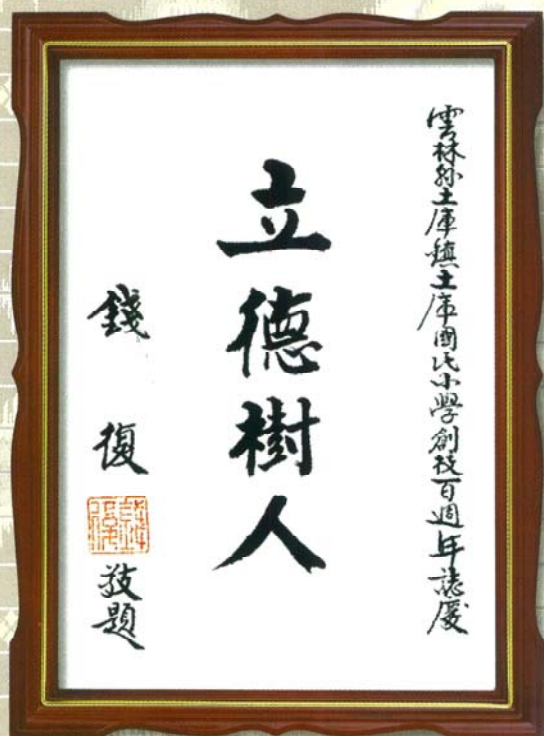 雲林縣土庫鎮土庫國民小學創校百週年誌慶
立德樹人
錢復
敬題